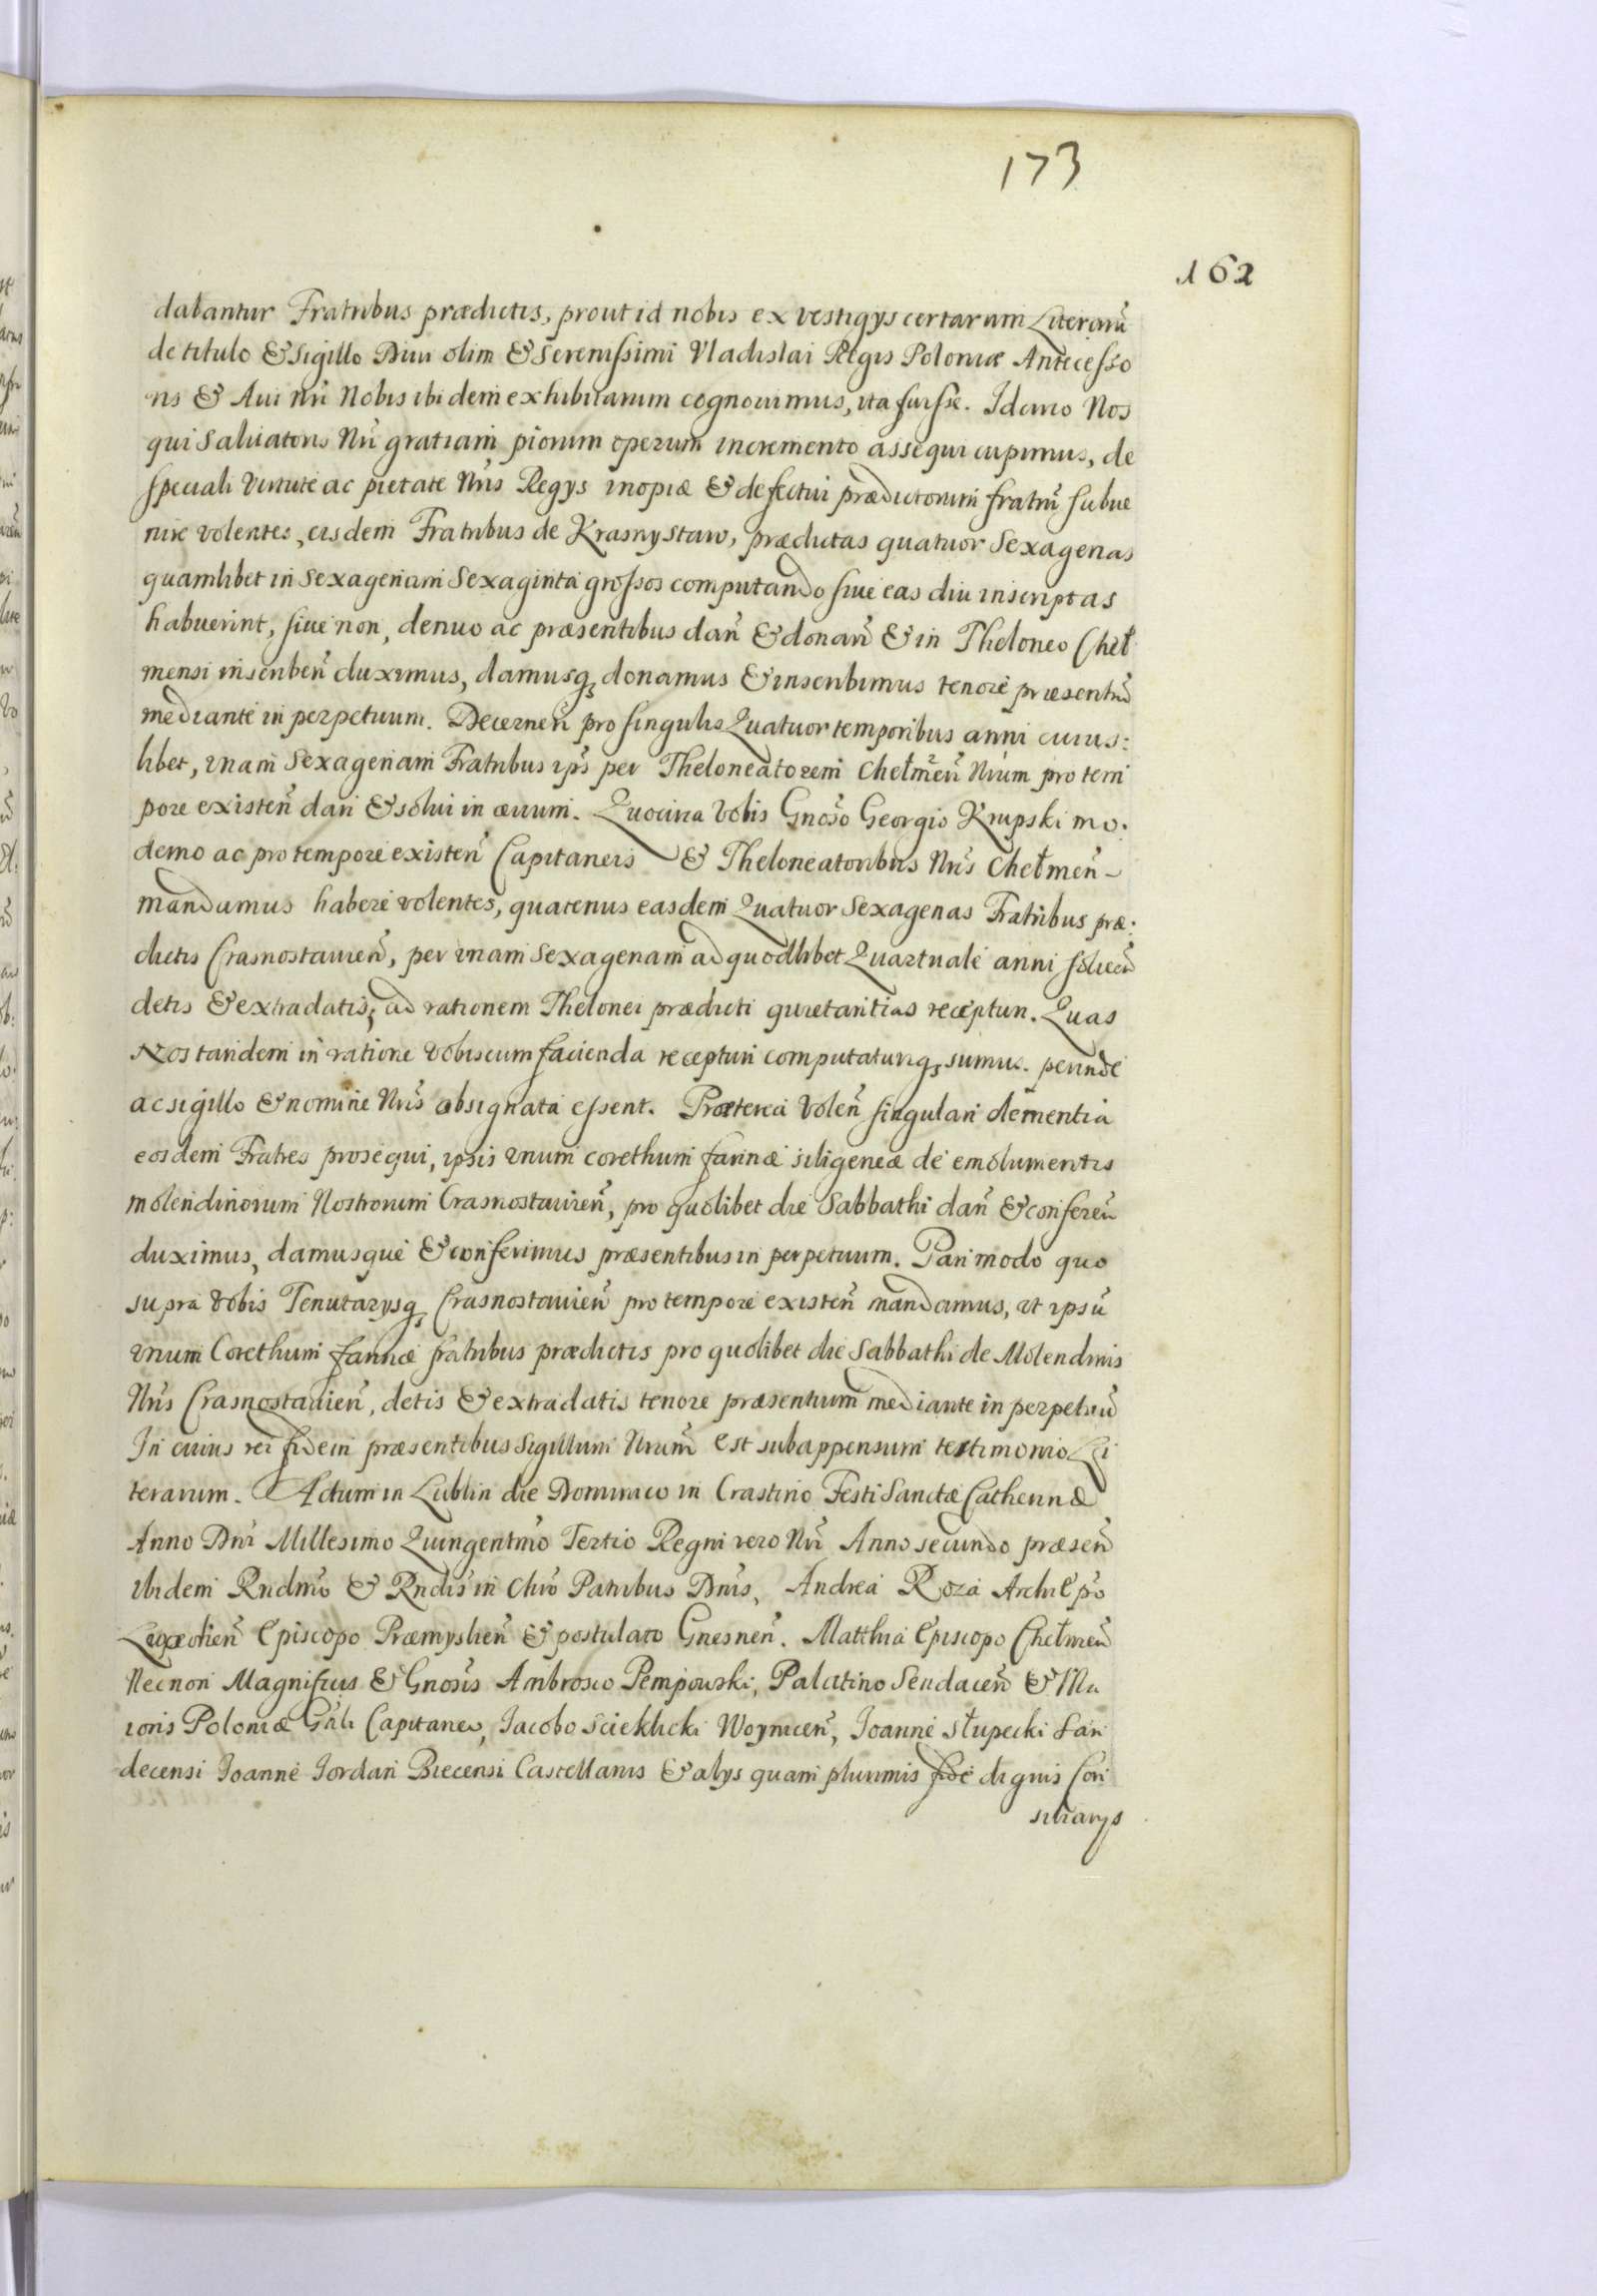 173
162
dabantur Fratribus prædictis, prout id nobis ex vestigÿs certarum Literarũ
de titulo & sigillo Diui olim & Serenissimi Vladislai Regis Poloniæ Antecesso
ris & Aui nr̃i Nobis ibidem exhibitarum cognouimus, ita fuisse. Ideirco Nos
qui Saluatoris Nr̃i gratiam piorum operum incremento assequi cupimus, de
speciali virtute ac pietate Nr̃is Regÿs inopiæ & defectui prædictorum fratrũ subue
nire volentes, eisdem Fratribus de Krasnystaw, prædictas quatuor Sexagenas
quamlibet in Sexagenam Sexaginta grossos computando siue eas diu inscriptas
habuerint, siue non, denuo ac præsentibus dan̄ & donan̄ & in Theloneo Cheł
mensi inscriben̄ duximus, damusq; donamus & inscribimus tenore præsentiũ
mediante in perpetuum. Decernen̄ pro singulis Quatuor temporibus anni cuius:
libet, vnam Sexagenam Fratribus ip̃s per Theloneatorem Chełmen̄ Nr̃um pro tem
pore existen̄ dari & solui in æuum. Quocirca vobis Gnõso Georgio Krupski mo.
derno ac pro tempore existen̄ Capitaneis & Theloneatoribus Nr̃is Chełmen̄ -
mandamus habere volentes, quatenus easdem Quatuor Sexagenas Fratribus præ:
dictis Crasnostauien̄, per vnam Sexagenam ad quodlibet Quartuale anni soluen̄
detis & extradatis, ad rationem Thelonei prædicti quietantias recepturi. Quas
Nos tandem in ratione vobiscum facienda recepturi computaturiq; sumus. perinde
ac sigillo & nomine Nr̃is absignata essent. Præterea Volen̄ singulari clementia
eosdem Fratres prosequi, ipsis vnum corethum farinæ siligeneæ de emolumentis
molendinorum Nostrorum Crasnostauien̄, pro quolibet die Sabbathi dan̄ & conferen̄
duximus, damusque & conferimus præsentibus in perpetuum. Pari modo quo
supra vobis Tenutarÿsq; Crasnostauien̄ pro tempore existen̄ mandamus, vt ipsũ
vnum Corethum farinæ fratribus prædictis pro quolibet die Sabbathi de Molendinis
Nr̃is Crasnostauien̄, detis & extradatis tenore præsentium mediante in perpetuũ
In cuius rei fidem præsentibus Sigillum Nr̃um est subappensum testimonio Li
terarum. Actum in Lublin die Dominico in Crastino Festi Sanctæ Catherinæ
Anno Dn̄i Millesimo Quingentm̃o Tertio Regni vero Nr̃i Anno secundo præsen̄
ibidem Rndm̃o & Rndis̃ in Chr̃o Patribus Dn̄is, Andrea Roza Archiep̃o
Leopolien̄ Episcopo Præmyslien̄ & postulato Gnesnen̄. Matthia Episcopo Chełmen̄
Necnon Magnificis & Gnõsis Ambrosio Pempowski, Palatino Siradien̄ & Ma
ioris Poloniæ Gñli Capitaneo, Iacobo Scieklicki Woynicen̄, Joanne Słupecki San
decensi Joanne Jordan Biecensi Castellanis & alÿs quam plurimis fide dignis Con
siliarÿs